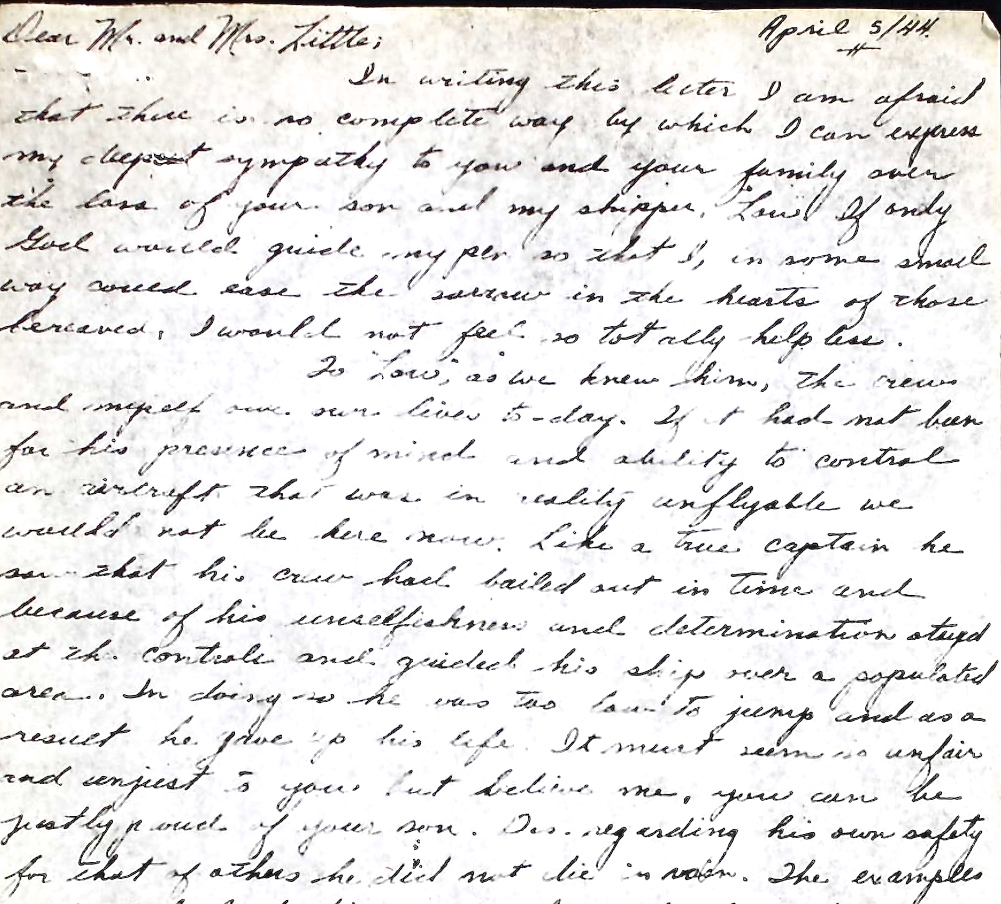 Dear Mr. and Mrs. Little; April 5/44.
In writing this letter I am afraid
that there is no complete way by which I can express
my deepest sympathy to you and your family over
the loss of your son and my skipper, "Lou". If only
God would guide my pen so that I, in some small
way could ease the sorrow in the hearts of those
bereaved, I would not feel so totally helpless.
To "Lou", as we knew him, the crew
and myself owe our lives to-day. If it had not been
for his presence of mind and ability to control
an aircraft that was in reality unflyable we
would not be here now. Like a true captain he
saw that his crew had bailed out in time and
because of his unselfishness and determination stayed
at the controls and guided his ship over a populated
area. In doing so he was too low to jump and as a
result he gave up his life. It must seem so unfair
and unjust to you but believe me, you can be
justly proud of your son. Disregarding his own safety
for that of others he did not die in vain. The examples